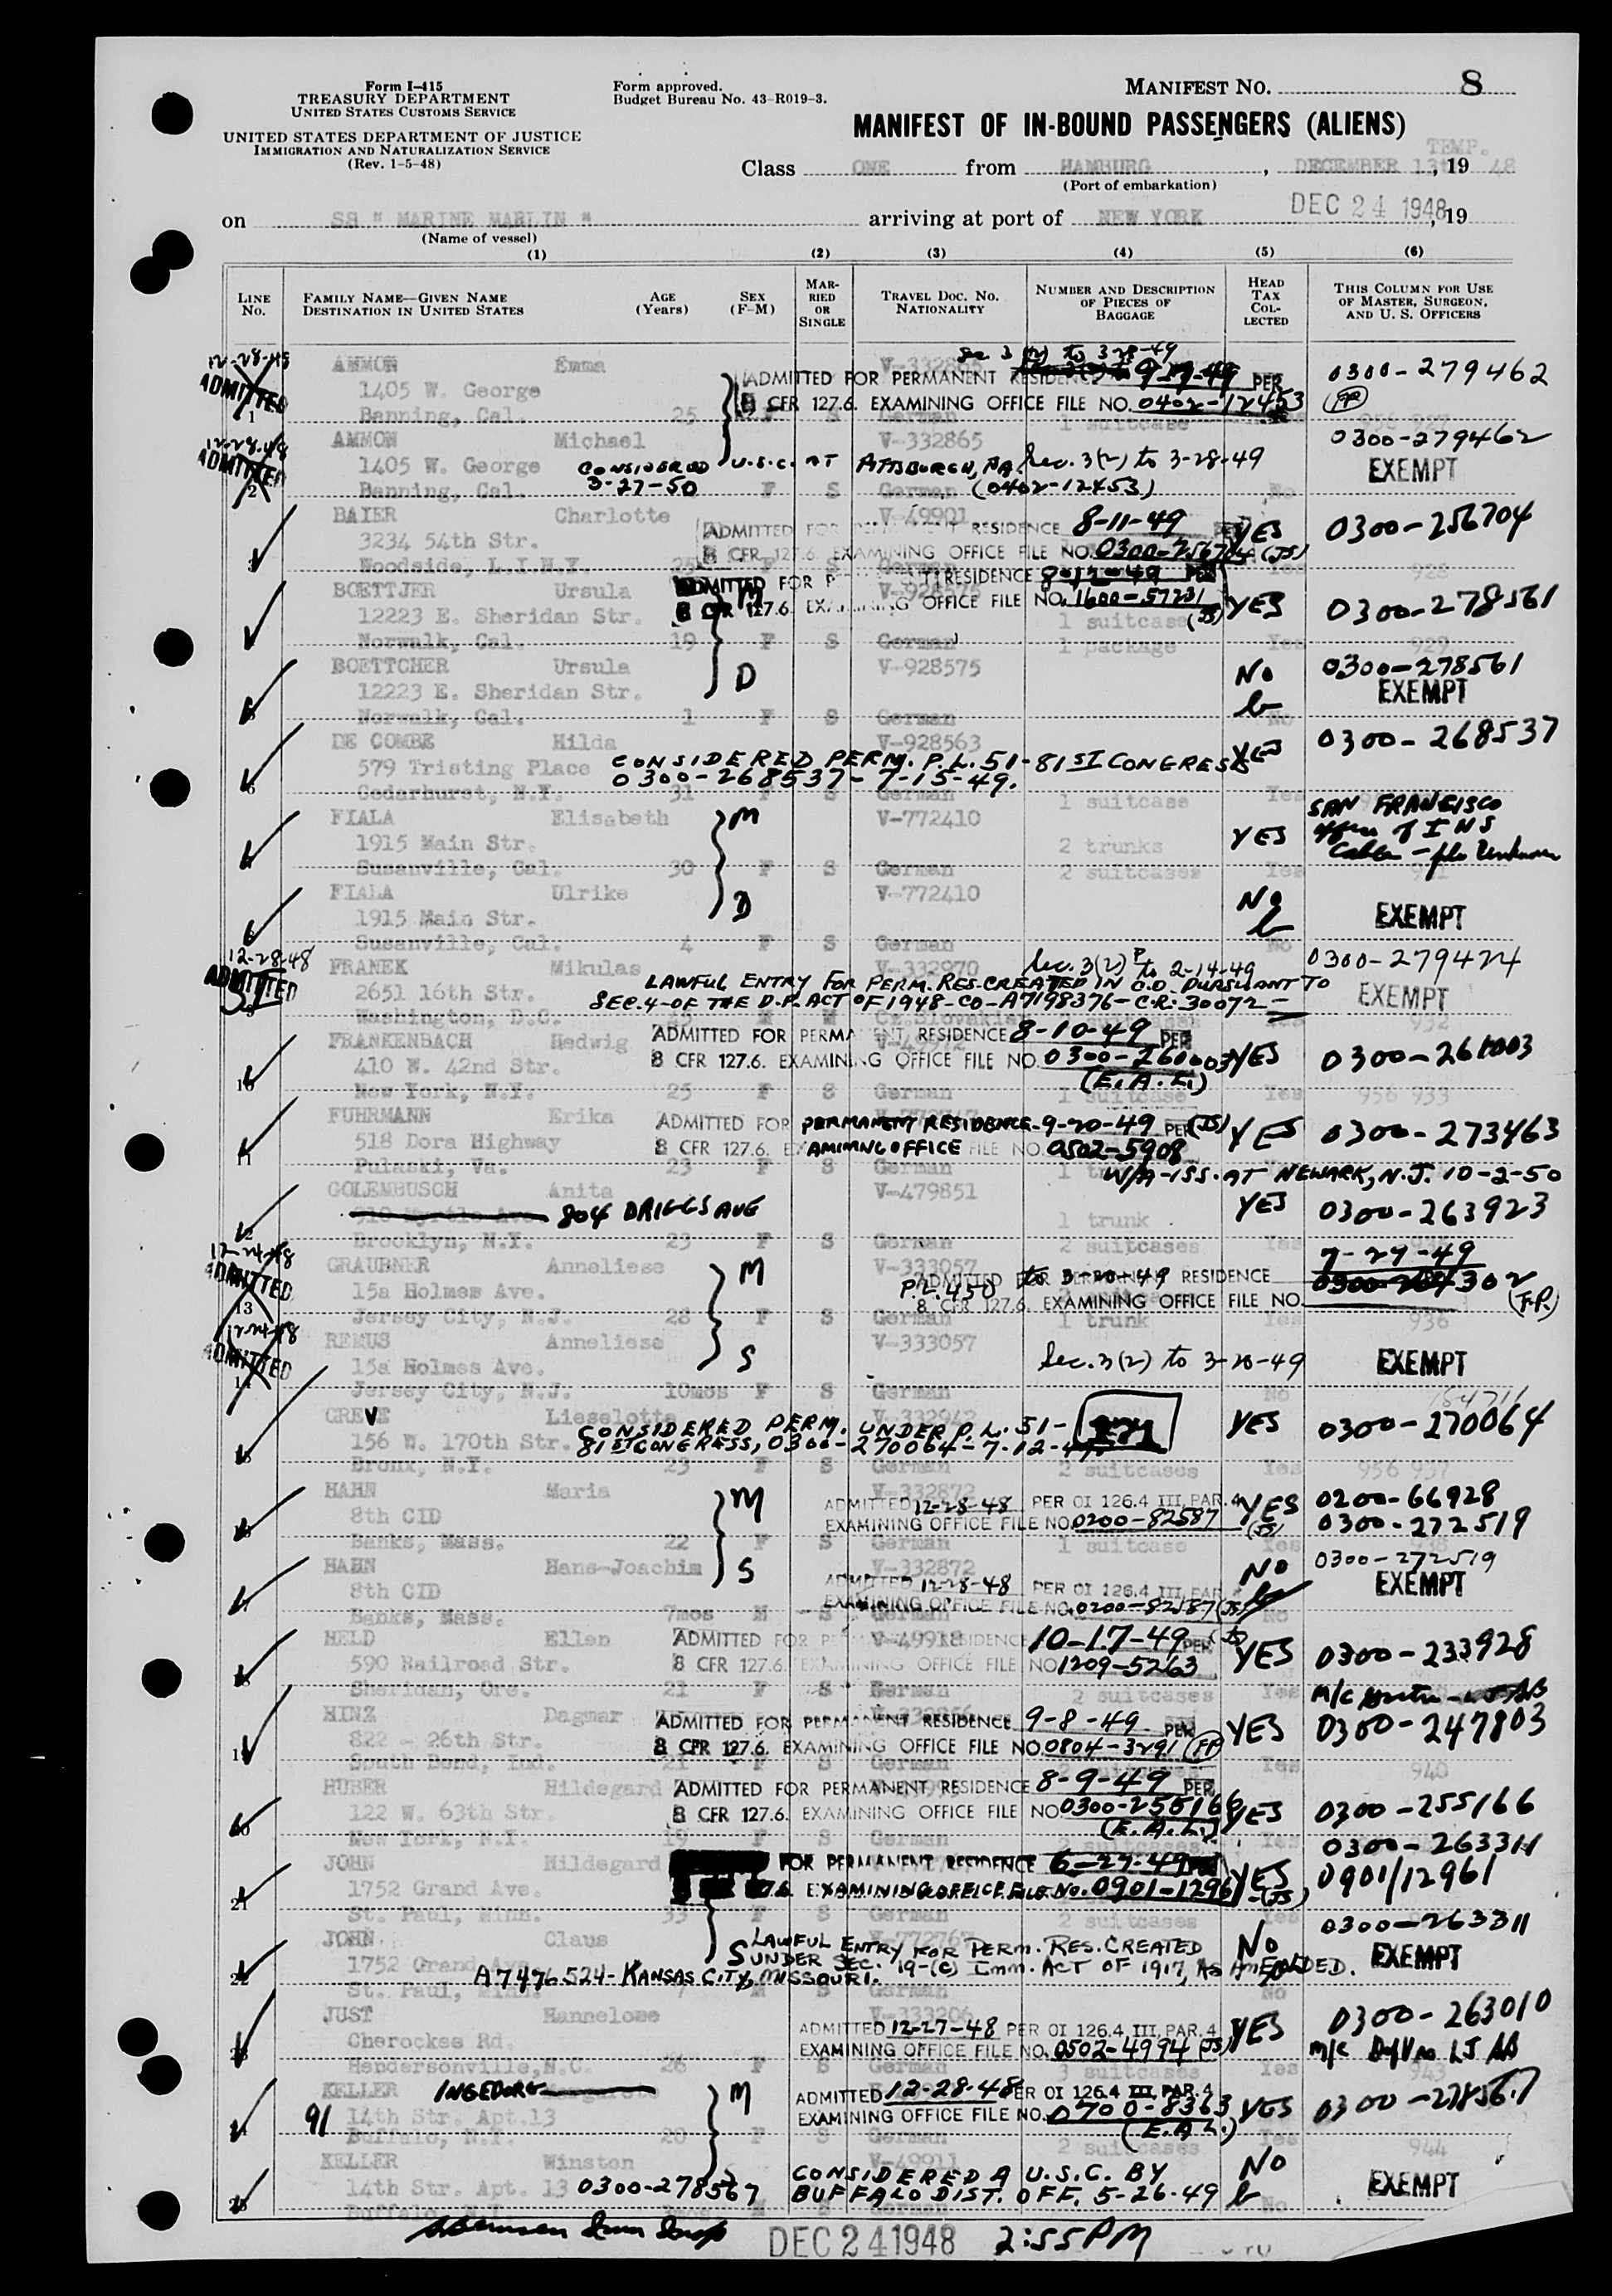 Form I-415
TREASURY DEPARTMENT
UNITED STATES CUSTOMS SERVICE
UNITED STATES DEPARTMENT OF JUSTICE
IMMIGRATION AND NATURALIZATION SERVICE
(Rev. 1-5-48)
Form approved.
Budget Bureau No. 43-R019-3.
MANIFEST NO. 8
MANIFEST OF IN-BOUND PASSENGERS (ALIENS)
TEMP.
Class ONE from HAMBURG, DECEMBER 13th, 19 48
(Port of embarkation)
on SS " MARINE MARLIN " arriving at port of NEW YORK DEC 24 1948, 19
(Name of vessel)
(1) (2) (3) (4) (5) (6)
LINE No. FAMILY NAME—GIVEN NAME DESTINATION IN UNITED STATES AGE (Years) SEX (F-M) MARRIED OR SINGLE TRAVEL DOC. NO. NATIONALITY NUMBER AND DESCRIPTION OF PIECES OF BAGGAGE HEAD TAX COLLECTED THIS COLUMN FOR USE OF MASTER, SURGEON, AND U. S. OFFICERS
12-28-48 AMMON Emma V-332865 Sec 3 (2) to 3-28-49
ADMITTED 1405 W. George ADMITTED FOR PERMANENT RESIDENCE 9-19-49 PER 0300-279462
1 Banning, Cal. 25 F S German 8 CFR 127.6. EXAMINING OFFICE FILE NO. 0402-12453
1 suitcase
12-28-48 AMMON Michael V-332865 0300-279462
ADMITTED 1405 W. George CONSIDERED U.S.C. AT PITTSBURGH, PA. Sec. 3(2) to 3-28-49 EXEMPT
2 Banning, Cal. 3-27-50 F S German (0402-12453) No
BAIER Charlotte V-49901
3234 54th Str. ADMITTED FOR PERMANENT RESIDENCE 8-11-49 YES 0300-256704
Woodside, L.I.N.Y. 25 8 CFR 127.6. EXAMINING OFFICE FILE NO. 0300-256704 (JS) Yes 928
BOETTJER Ursula V-928575 ADMITTED FOR PERMANENT RESIDENCE 8-12-49 PER
12223 E. Sheridan Str. M 8 CFR 127.6. EXAMINING OFFICE FILE NO. 1600-57231 (JS) YES 0300-278561
1 suitcase
Norwalk, Cal. 19 F S German 1 package Yes 929
BOETTCHER Ursula V-928575 0300-278561
12223 E. Sheridan Str. D No EXEMPT
Norwalk, Cal. 1 F S German No
DE COMBE Hilda V-928563 YES 0300-268537
579 Tristing Place CONSIDERED PERM. P.L. 51-81ST CONGRESS
0300-268537-7-15-49.
Cedarhurst, N.Y. 31 F S German 1 suitcase Yes
FIALA Elisabeth M V-772410 SAN FRANCISCO
1915 Main Str. 2 trunks YES office of I N S
Susanville, Cal. 30 F S German 2 suitcases Yes
FIALA Ulrike V-772410
1915 Main Str. D No EXEMPT
Susanville, Cal. 4 F S German No
12-28-48 FRANEK Mikulas V-332970 Sec. 3(2) to 2-14-49 0300-279424
ADMITTED 2651 16th Str. LAWFUL ENTRY FOR PERM. RES. CREATED IN C.O. PURSUANT TO EXEMPT
Washington, D.C. SEC. 4-OF THE D.P. ACT OF 1948-CO-A7198376-C.R. 30072 932
FRANKENBACH Hedwig ADMITTED FOR PERMANENT RESIDENCE 8-10-49 PER
410 W. 42nd Str. 8 CFR 127.6. EXAMINING OFFICE FILE NO. 0300-261003 YES 0300-261003
10 New York, N.Y. 25 F S German 1 suitcase (E.A.L.) Yes 956 933
FUHRMANN Erika ADMITTED FOR PERMANENT RESIDENCE 9-20-49 PER (JS)
518 Dora Highway 8 CFR 127.6. EXAMINING OFFICE FILE NO. 0502-5908 YES 0300-273463
11 Pulaski, Va. 23 F S German W/A-ISS. AT NEWARK, N.J. 10-2-50
GOLEMBUSCH Anita V-479851 YES 0300-263923
910 Myrtle Ave 804 DRIGGS AVE 1 trunk
Brooklyn, N.Y. 23 F S German 2 suitcases Yes
12-24-48 GRAUBNER Anneliese M V-333057 7-27-49
ADMITTED 15a Holmes Ave. P.L. 450 to 3-20-49 ADMITTED FOR PERMANENT RESIDENCE
13 8 CFR 127.6. EXAMINING OFFICE FILE NO. (F.P.)
Jersey City, N.J. 28 F S German 1 trunk Yes 936
12-24-48 REMUS Anneliese V-333057
ADMITTED 15a Holmes Ave. S Sec. 3(2) to 3-20-49 EXEMPT
14 Jersey City, N.J. 10mos F S German No
GREVE Lieselotte V-332942 YES 0300-270064
156 W. 170th Str. CONSIDERED PERM. UNDER P.L. 51-
81ST CONGRESS, 0300-270064-7-12-49
Bronx, N.Y. 23 F S German 2 suitcases Yes 956 937
HAHN Maria M V-332872 0200-66928
8th CID ADMITTED 12-28-48 PER OI 126.4 III, PAR. 4 YES 0300-272519
EXAMINING OFFICE FILE NO. 0200-82587 (JS)
Banks, Mass. 22 F S German 1 suitcase Yes 938
HAHN Hans-Joachim S V-332872 No 0300-272519
8th CID ADMITTED 12-28-48 PER OI 126.4 III, PAR. 4 EXEMPT
EXAMINING OFFICE FILE NO. 0200-82587 (JS)
Banks, Mass. 7mos M S German No
HELD Ellen V-49918 ADMITTED FOR PERMANENT RESIDENCE 10-17-49 PER
590 Railroad Str. 8 CFR 127.6. EXAMINING OFFICE FILE NO. 1209-5263 YES 0300-233928
Sheridan, Ore. 21 F S German 2 suitcases Yes
HINZ Dagmar ADMITTED FOR PERMANENT RESIDENCE 9-8-49 PER YES 0300-247803
822 - 26th Str. 8 CFR 127.6. EXAMINING OFFICE FILE NO. 0804-3291 (FP)
South Bend, Ind. 21 F S German Yes 940
HUBER Hildegard ADMITTED FOR PERMANENT RESIDENCE 8-9-49 PER
122 W. 63th Str. 8 CFR 127.6. EXAMINING OFFICE FILE NO. 0300-255166 YES 0300-255166
New York, N.Y. 19 F S German (E.A.L.)
JOHN Hildegard FOR PERMANENT RESIDENCE 6-27-49 0300-263311
1752 Grand Ave. 127.6. EXAMINING OFFICE FILE NO. 0901-12961 (JS) YES 0901/12961
21 St. Paul, Minn. 33 F S German 2 suitcases
JOHN Claus S LAWFUL ENTRY FOR PERM. RES. CREATED No 0300-263311
1752 Grand Ave. UNDER SEC. 19-(C) IMM. ACT OF 1917, AS AMENDED. EXEMPT
A7476524-KANSAS CITY, MISSOURI.
St. Paul, Minn. 7 M S German No
JUST Hannelowe V-333206 0300-263010
Cherockee Rd. ADMITTED 12-27-48 PER OI 126.4 III, PAR. 4 YES
EXAMINING OFFICE FILE NO. 0502-4994 (JS)
Hendersonville, N.C. 26 F S German 3 suitcases Yes 943
KELLER INGEBORG M ADMITTED 12-28-48 PER OI 126.4 III, PAR. 4
91 14th Str. Apt. 13 EXAMINING OFFICE FILE NO. 0700-8363 YES 0300-278567
(E.A.L.)
Buffalo, N.Y. 20 F S German 2 suitcases Yes 944
KELLER Winston V-49911 CONSIDERED A U.S.C. BY No
14th Str. Apt. 13 0300-278567 BUFFALO DIST. OFF. 5-26-49 EXEMPT
Buffalo, N.Y. M S German No
DEC 24 1948 2:55 PM